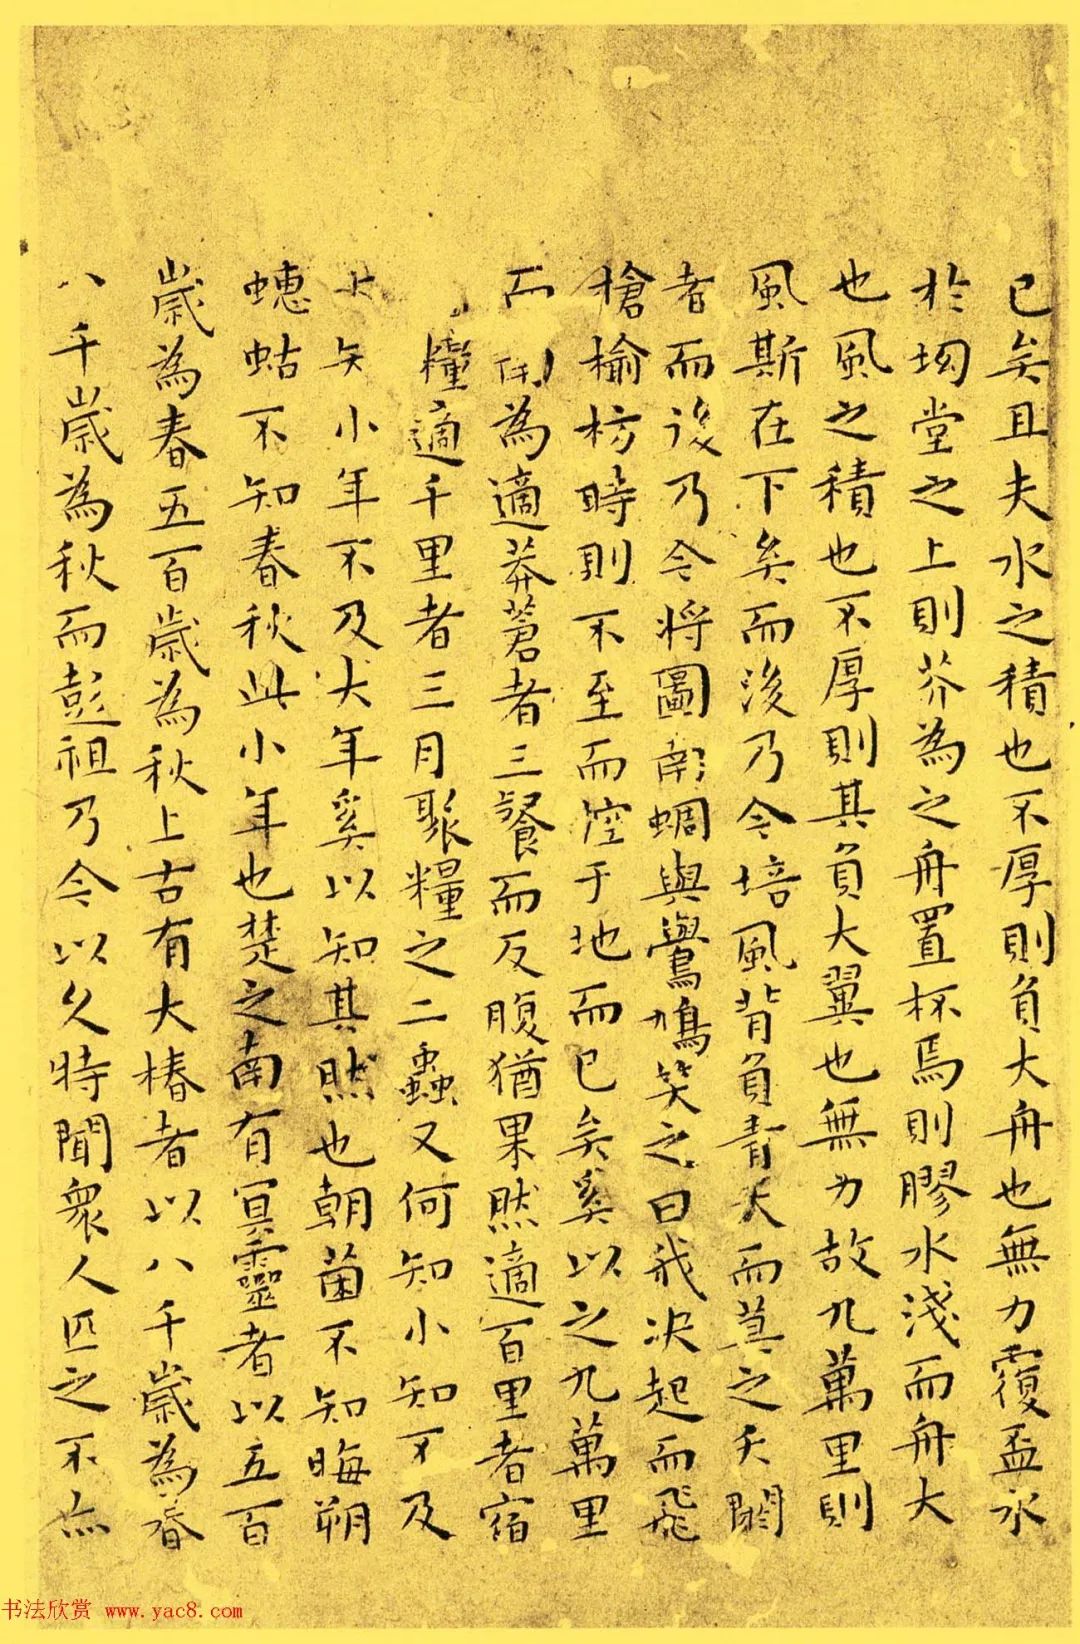 已矣且夫水之積也不厚則負大舟也無力覆盃水
於坳堂之上則芥為之舟置杯焉則膠水淺而舟大
也風之積也不厚則其負大翼也無力故九萬里則
風斯在下矣而後乃今培風背負青天而莫之夭閼
者而後乃今將圖南蜩與鷽鳩笑之曰我決起而飛
槍榆枋時則不至而控于地而已矣奚以之九萬里
而為適莽蒼者三餐而反腹猶果然適百里者宿
糧適千里者三月聚糧之二蟲又何知小知不及
大知小年不及大年奚以知其然也朝菌不知晦朔
蟪蛄不知春秋此小年也楚之南有冥靈者以五百
歲為春五百歲為秋上古有大椿者以八千歲為春
八千歲為秋而彭祖乃今以久特聞眾人匹之不亦
书法欣赏 www.yac8.com